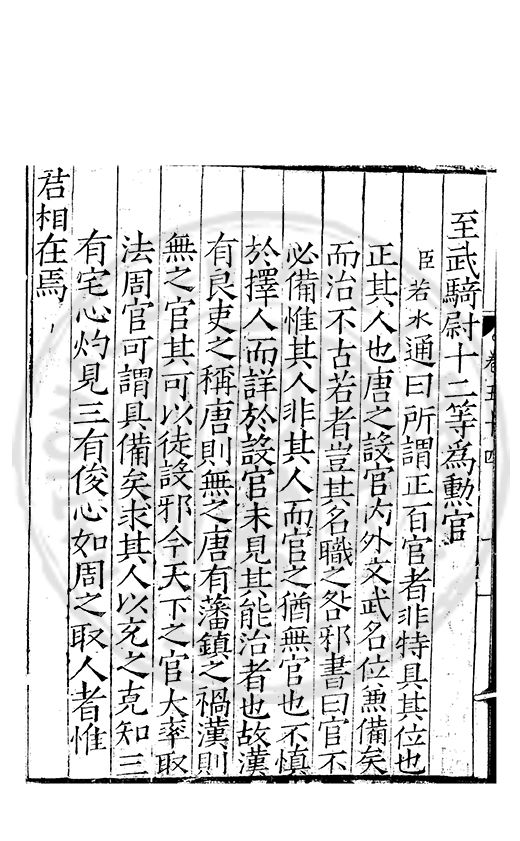 卷五十四
至武騎尉十二等為勲官
臣若水通曰所謂正百官者非特具其位也
正其人也唐之設官内外文武名位兼備矣
而治不古若者豈其名職之咎邪書曰官不
必備惟其人非其人而官之猶無官也不慎
於擇人而詳於設官未見其能治者也故漢
有良吏之稱唐則無之唐有藩鎮之禍漢則
無之官其可以徒設邪今天下之官大率取
法周官可謂具備矣求其人以充之克知三
有宅心灼見三有俊心如周之取人者惟
君相在焉